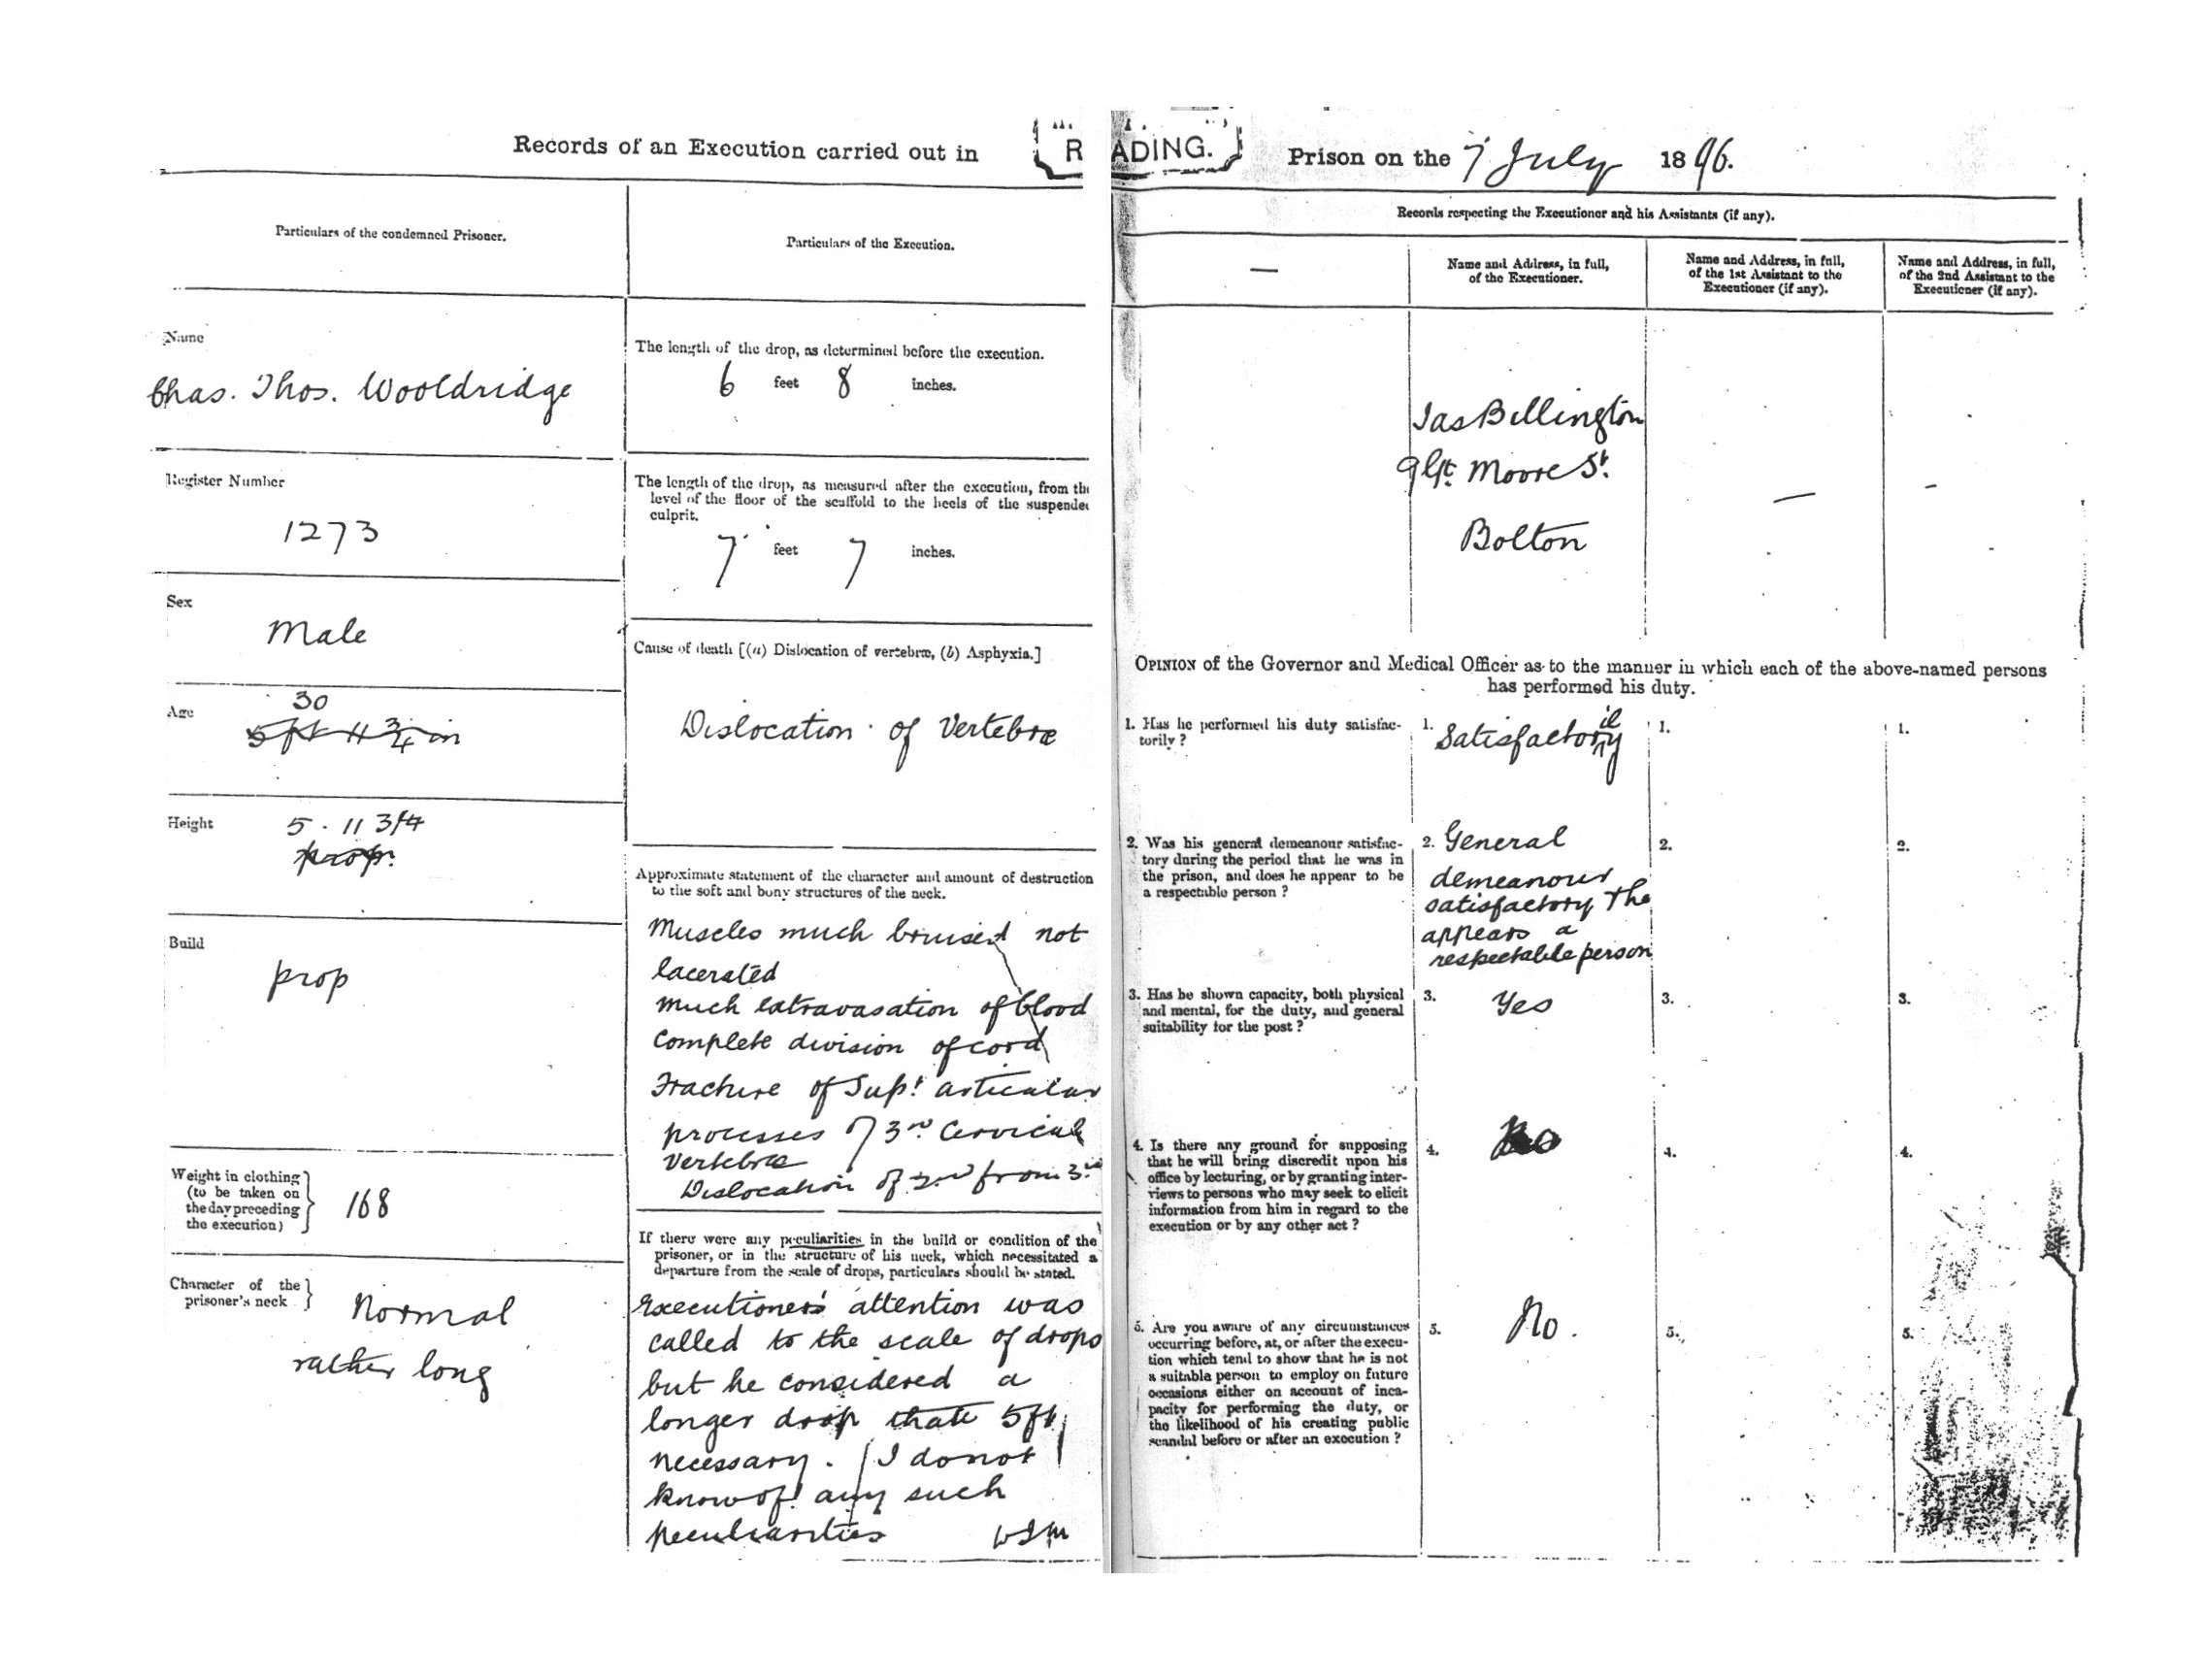 Records of an Execution carried out in READING. Prison on the 7 July 1896.
Particulars of the condemned Prisoner.
Particulars of the Execution.
Name
Chas. Thos. Wooldridge
Register Number
1273
Sex
Male
Age
30
5 ft 11 3/4 in
Height
5 . 11 3/4
prop.
Build
prop
Weight in clothing
(to be taken on
the day preceding
the execution)
168
Character of the
prisoner's neck
Normal
rather long
The length of the drop, as determined before the execution.
6 feet 8 inches.
The length of the drop, as measured after the execution, from the
level of the floor of the scaffold to the heels of the suspended
culprit.
7 feet 7 inches.
Cause of death [(a) Dislocation of vertebræ, (b) Asphyxia.]
Dislocation of Vertebræ
Approximate statement of the character and amount of destruction
to the soft and bony structures of the neck.
Muscles much bruised not
lacerated
Much extravasation of blood
Complete division of cord
Fracture of Supr. articular
processes of 3rd Cervical
Vertebræ
Dislocation of 2nd from 3rd
If there were any peculiarities in the build or condition of the
prisoner, or in the structure of his neck, which necessitated a
departure from the scale of drops, particulars should be stated.
Executioners' attention was
called to the scale of drops
but he considered a
longer drop that 5ft
necessary. / I do not
know of any such
peculiarities
Records respecting the Executioner and his Assistants (if any).
—
Name and Address, in full,
of the Executioner.
Name and Address, in full,
of the 1st Assistant to the
Executioner (if any).
Name and Address, in full,
of the 2nd Assistant to the
Executioner (if any).
Jas Billington
9 Gt. Moore St.
Bolton
—
-
OPINION of the Governor and Medical Officer as to the manner in which each of the above-named persons
has performed his duty.
1. Has he performed his duty satisfac-
torily?
1. Satisfactorily
1.
1.
2. Was his general demeanour satisfac-
tory during the period that he was in
the prison, and does he appear to be
a respectable person?
2. General
demeanour
satisfactory & he
appears a
respectable person
2.
2.
3. Has he shown capacity, both physical
and mental, for the duty, and general
suitability for the post?
3. Yes
3.
3.
4. Is there any ground for supposing
that he will bring discredit upon his
office by lecturing, or by granting inter-
views to persons who may seek to elicit
information from him in regard to the
execution or by any other act?
4. No
4.
4.
5. Are you aware of any circumstances
occurring before, at, or after the execu-
tion which tend to show that he is not
a suitable person to employ on future
occasions either on account of inca-
pacity for performing the duty, or
the likelihood of his creating public
scandal before or after an execution?
5. No.
5.
5.